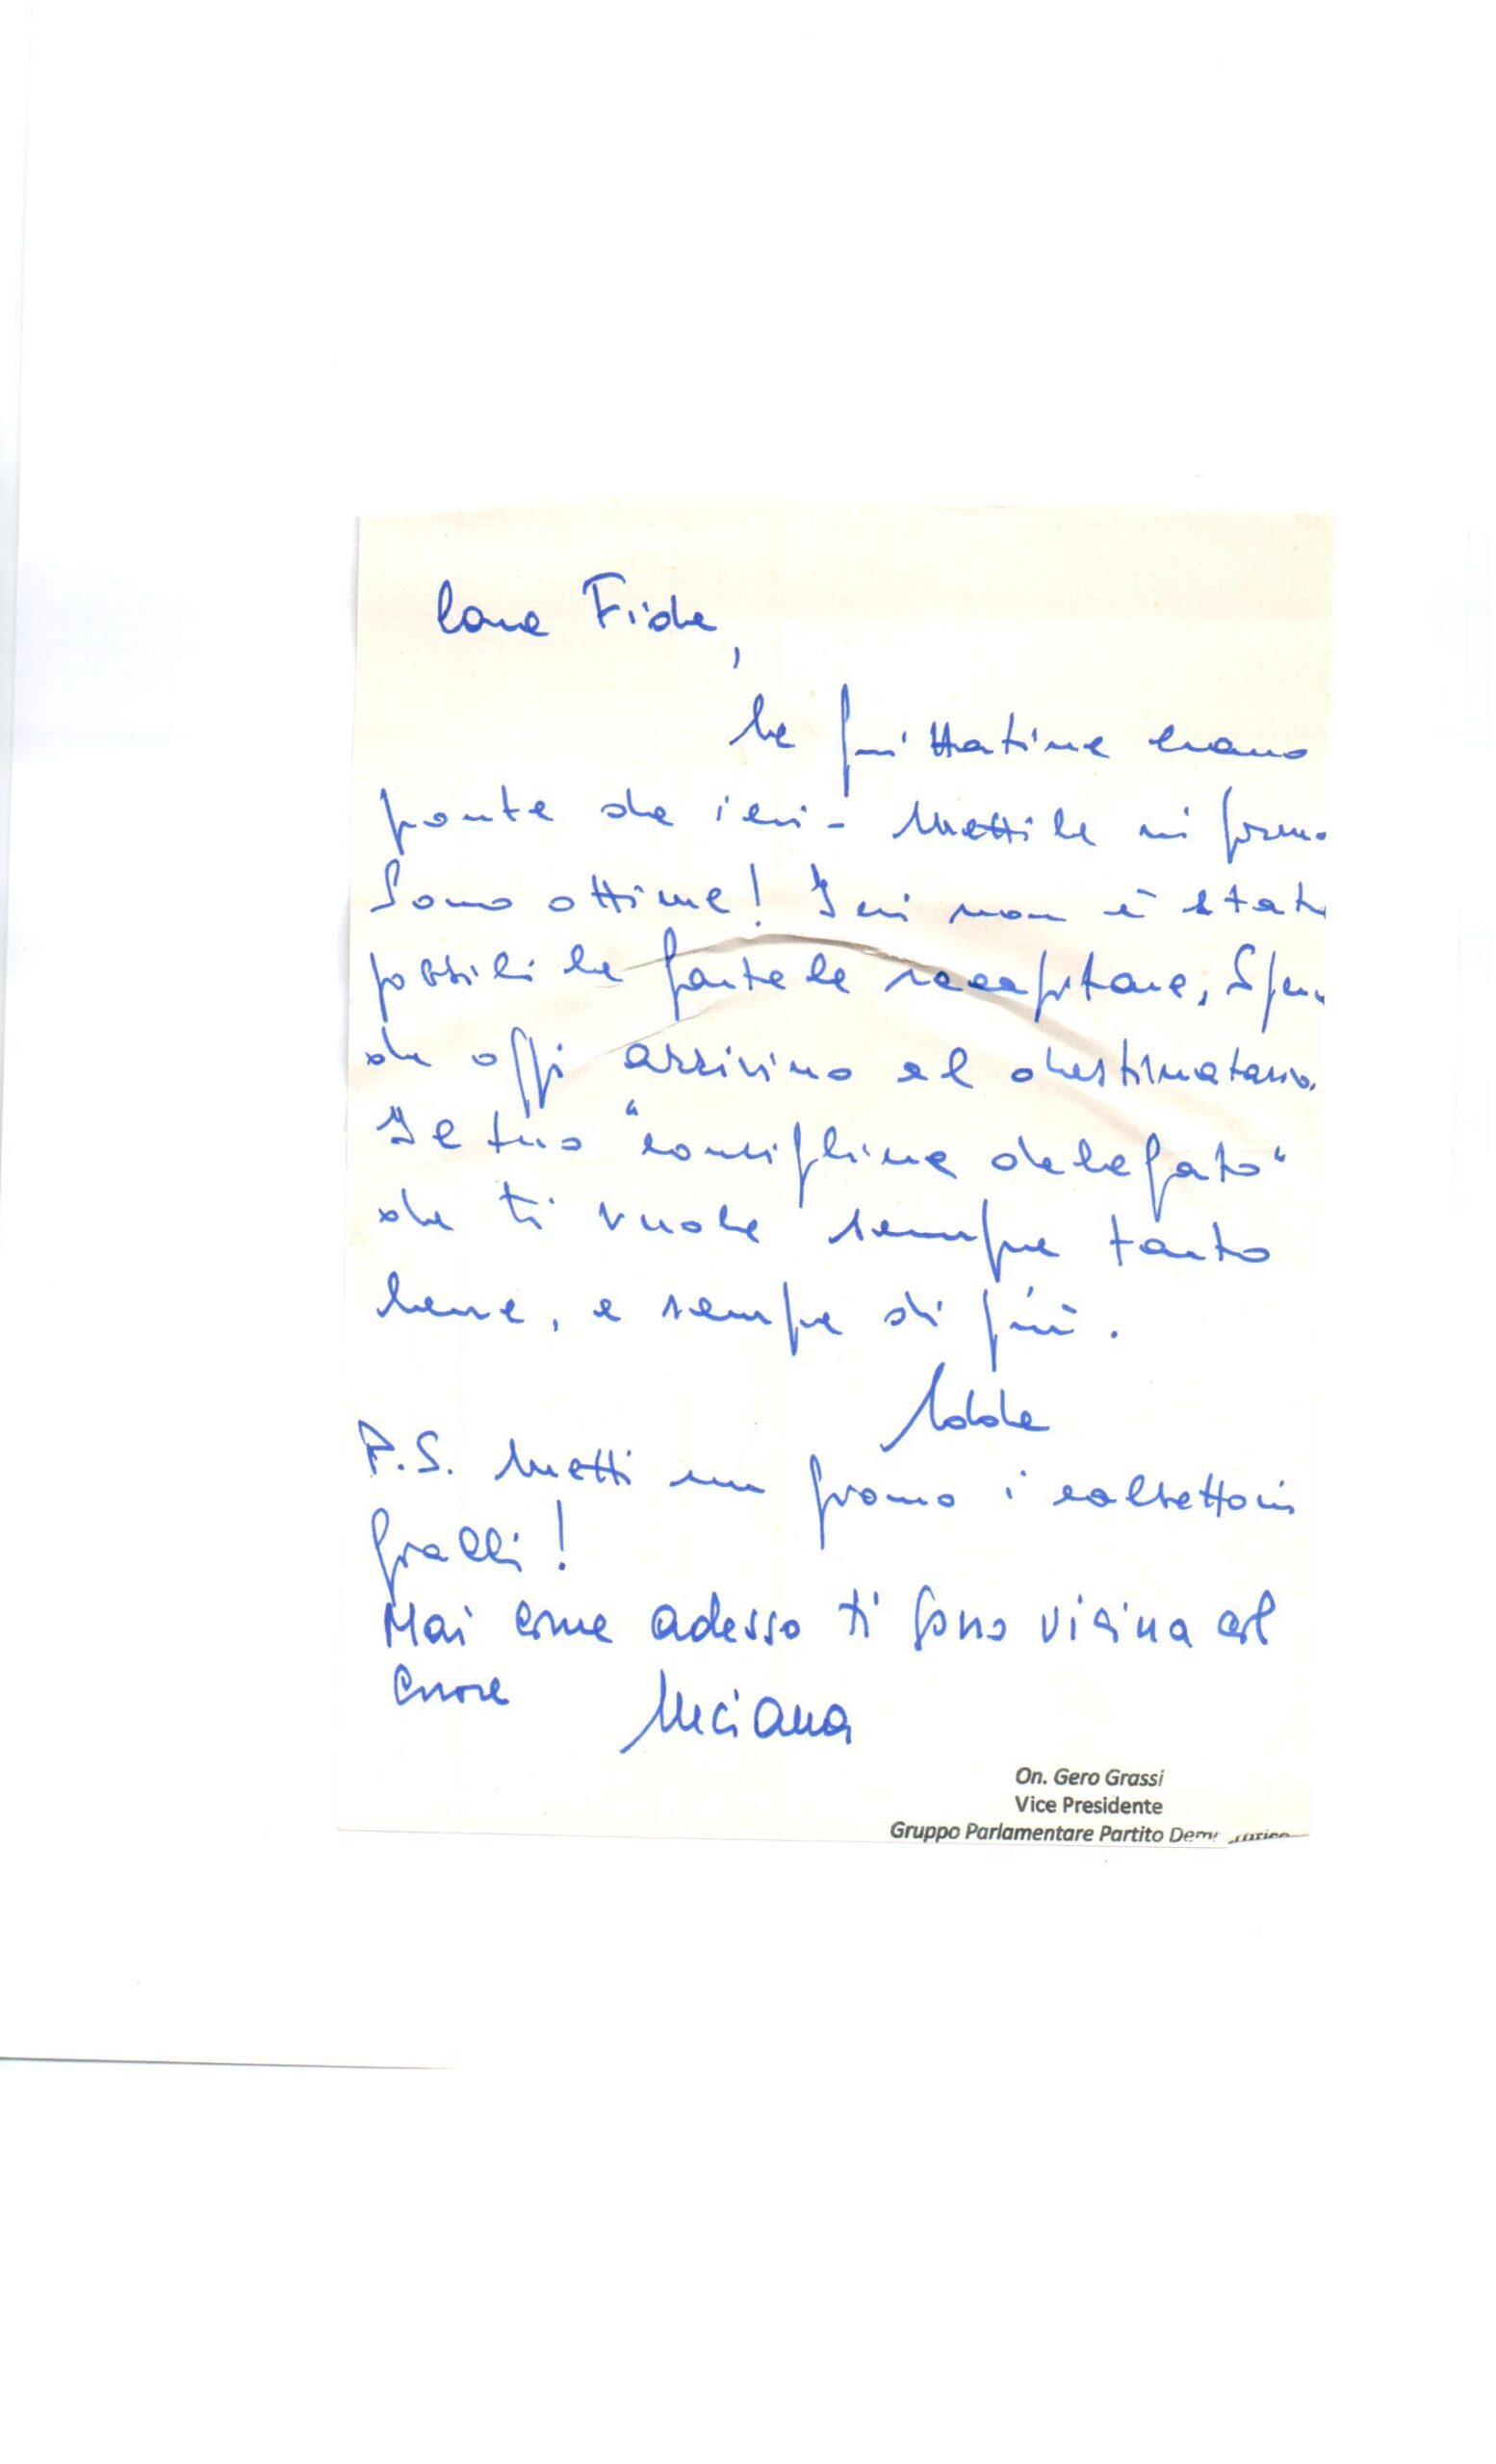 Cara Fida,
le frittatine erano
pronte da ieri - Mettile in forno
Sono ottime! Ieri non è stato
possibile fartele recapitare, Spero
che oggi arrivino al destinatario.
Il tuo "consigliere delegato"
che ti vuole sempre tanto
bene, e sempre di più.
Adda
P.S. Metti un giorno i calzettoni
gialli!
Mai come adesso ti sono vicina col
cuore Luciana
On. Gero Grassi
Vice Presidente
Gruppo Parlamentare Partito